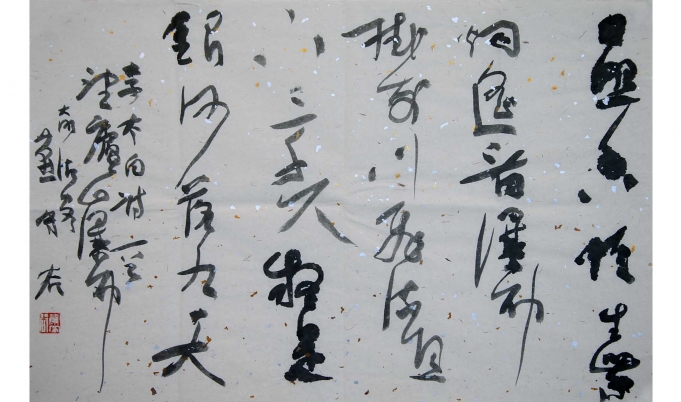 日照香炉生紫
烟遥看瀑布
挂前川飛流直
下三千尺疑是
银河落九天
李太白诗一首
望廬山瀑布